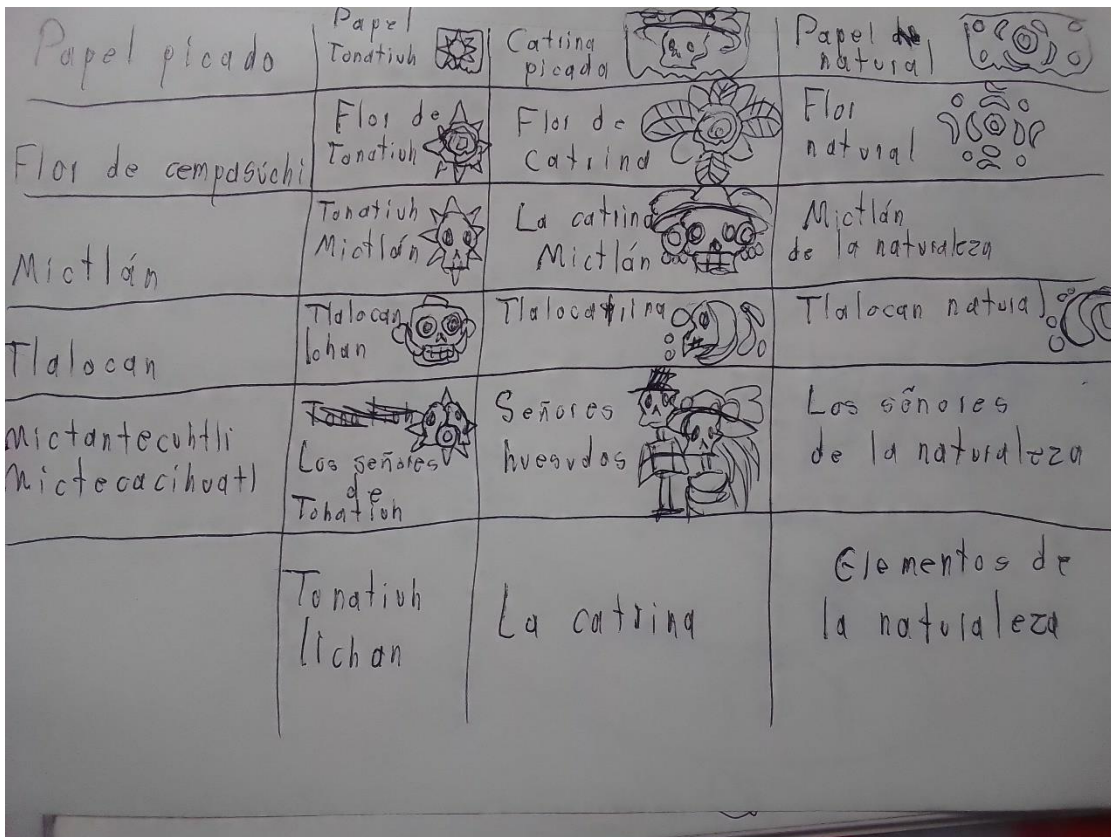 Papel picado
Papel
Tonatiuh
Catrina
picada
Papel de
natural
Flor de cempasúchi
Flor de
Tonatiuh
Flor de
Catrina
Flor
natural
Mictlán
Tonatiuh
Mictlán
La catrina
Mictlán
Mictlán
de la naturaleza
Tlalocan
Tlalocan
Ichan
Tlalocatrina
Tlalocan natural
Mictantecuhtli
Mictecacihuatl
Los señores
de
Tonatiuh
Señores
huesudos
Los señores
de la naturaleza
Tonatiuh
Iichan
La catrina
Elementos de
la naturaleza